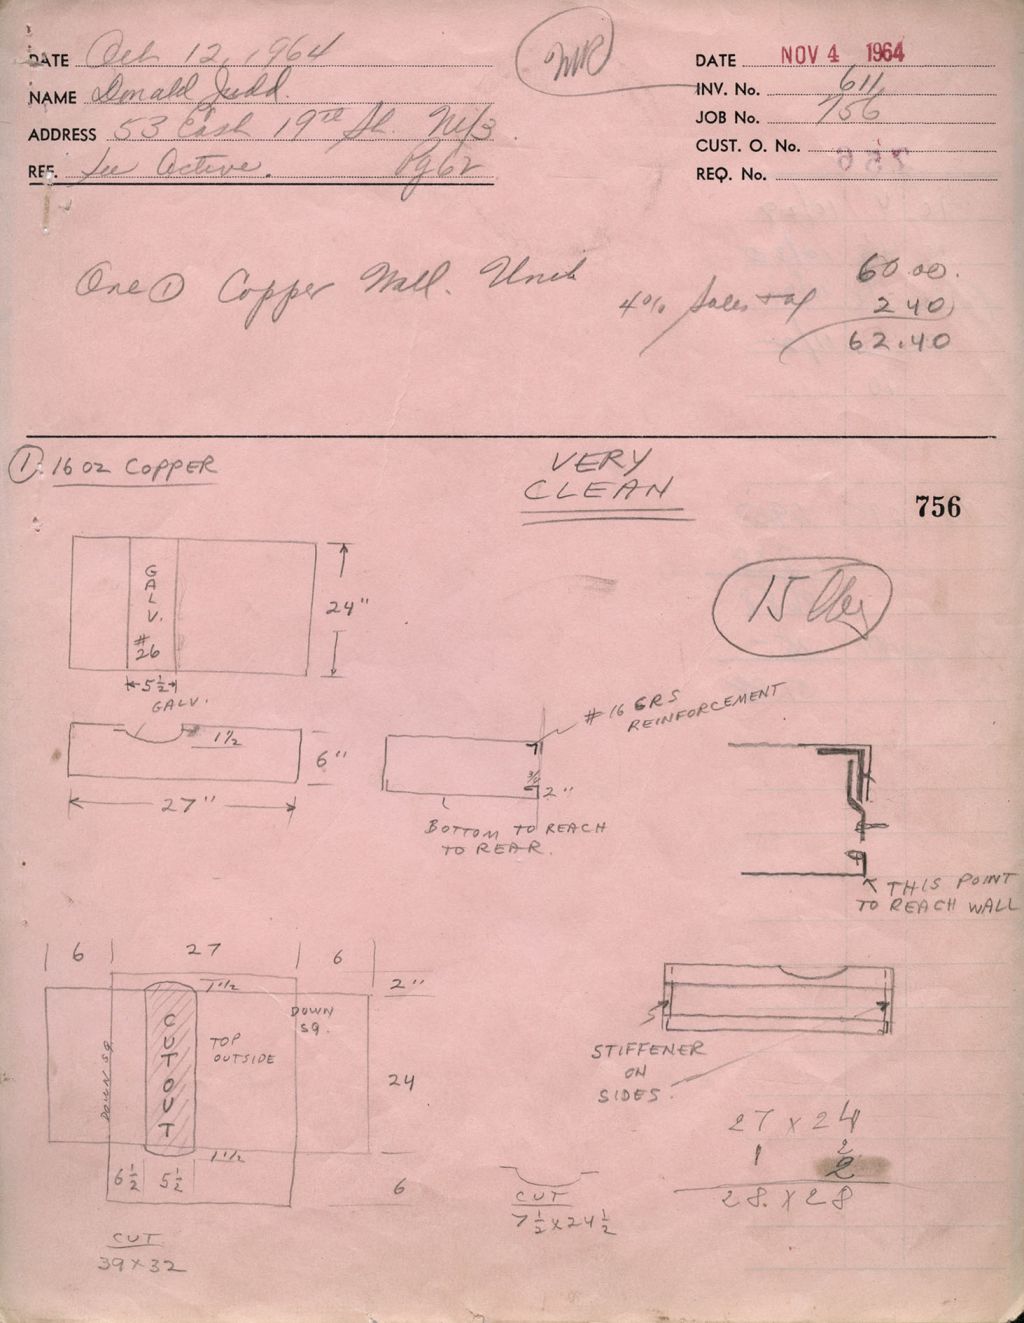 DATE Oct 12, 1964
NAME Donald Judd.
ADDRESS 53 East 19th St. NY3
REF. See Active. Pg 62
DATE NOV 4 1964
INV. No. 611
JOB No. 756
CUST. O. No.
REQ. No.
One ① Copper Wall. Unit 60.00.
4% Sales tax 2 40
62.40
① 16 OZ COPPER
VERY
CLEAN
756
GALV.
#26
24"
5½
GALV.
1½
6"
27"
#16 GRS
REINFORCEMENT
¾
2"
BOTTOM TO REACH
TO REAR.
THIS POINT
TO REACH WALL
6 27 6
1½
2"
DOWN
SQ.
CUTOUT
TOP
OUTSIDE
DOWN SQ.
24
1½
6½ 5½
6
CUT
39 x 32
CUT
7½ x 24½
STIFFENER
ON
SIDES.
27 x 24
1 2
2
28. x 28